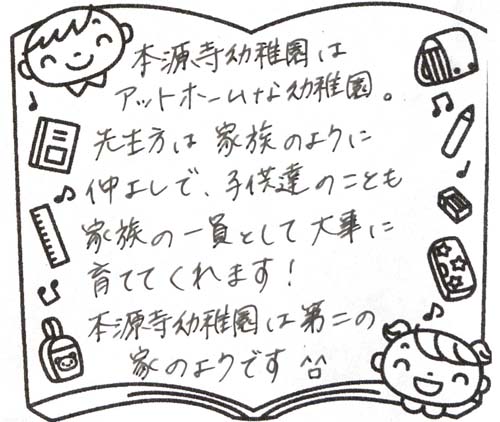 本源寺幼稚園は
アットホームな幼稚園。
先生方は家族のように
仲よしで、子供達のことも
家族の一員として大事に
育ててくれます！
本源寺幼稚園は第二の
家のようです ^^